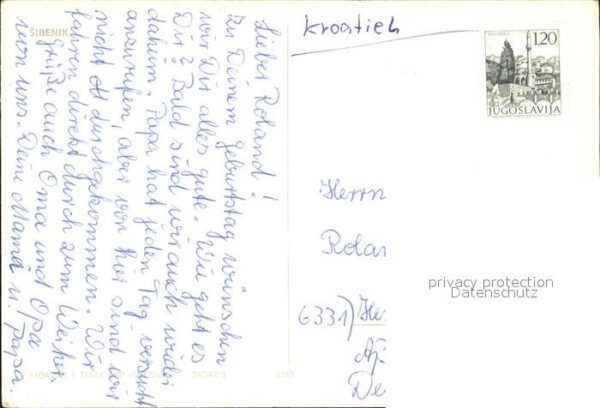 ŠIBENIK
Lieber Roland!
Zu Deinem Geburtstag wünschen
wir Dir alles gute. Wie geht es
Dir? Bald sind wir auch wieder
daheim. Papa hat jeden Tag versucht
anzurufen, aber von hier sind wir
nicht durchgekommen. Wir
fahren direkt durch zum Weiher.
Grüße auch Oma und Opa
von uns. Deine Mama u. Papa.
Kroatien
1,20
POČITELJ
JUGOSLAVIJA
Herrn
Rolan
6331) He
Ap
De
privacy protection
Datenschutz
ZAGREB